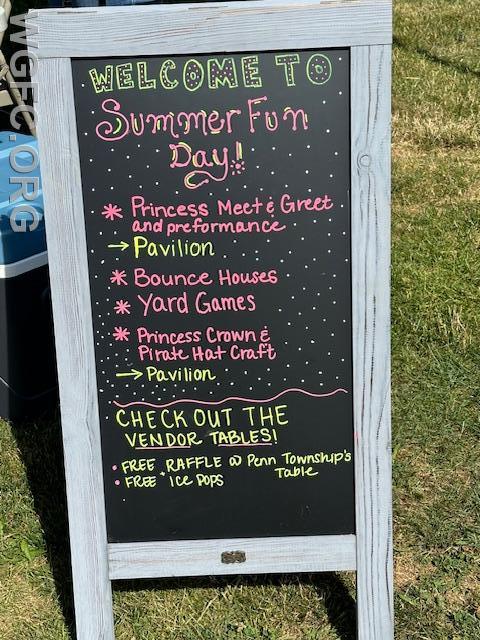 WELCOME TO
Summer Fun
Day!
* Princess Meet & Greet
and preformance
→ Pavilion
* Bounce Houses
* Yard Games
* Princess Crown &
Pirate Hat Craft
→ Pavilion
CHECK OUT THE
VENDOR TABLES!
• FREE RAFFLE @ Penn Township's
Table
• FREE ICE POPS
WGFC.ORG